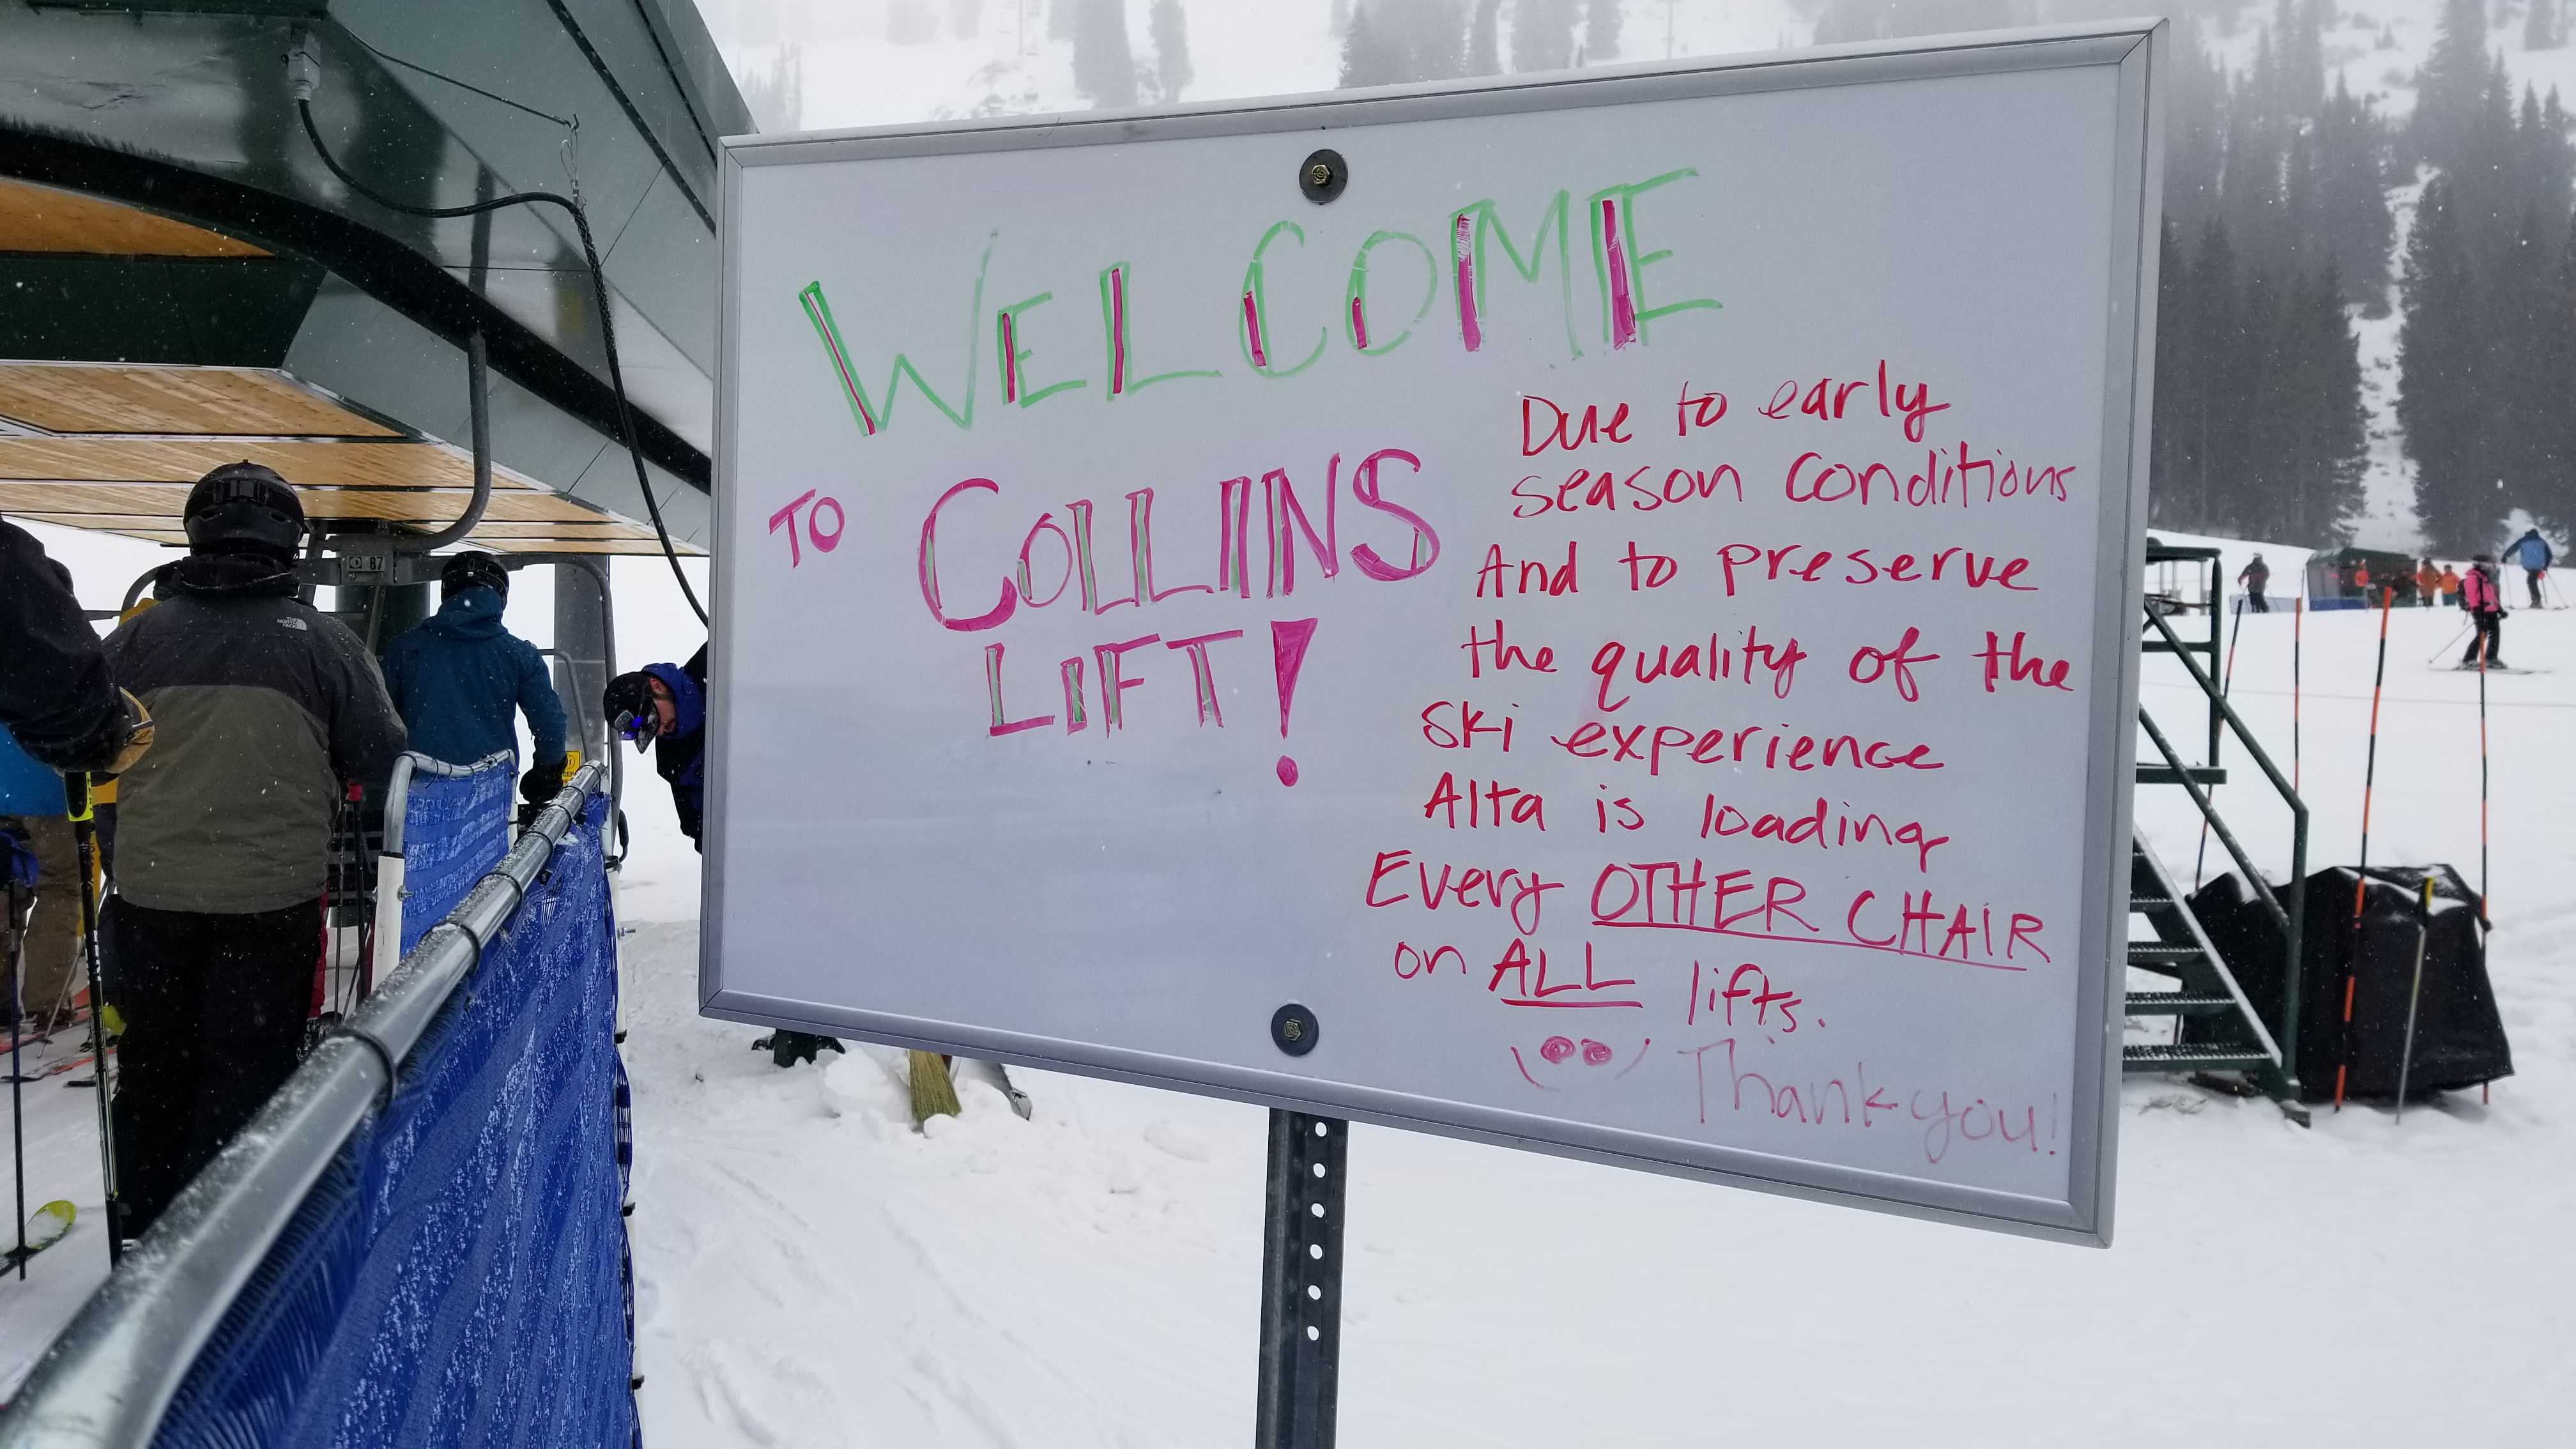 WELCOME
TO COLLINS
LIFT!
Due to early
season conditions
And to preserve
the quality of the
Ski experience
Alta is loading
Every OTHER CHAIR
on ALL lifts.
Thank you!
THE NORTH FACE
87